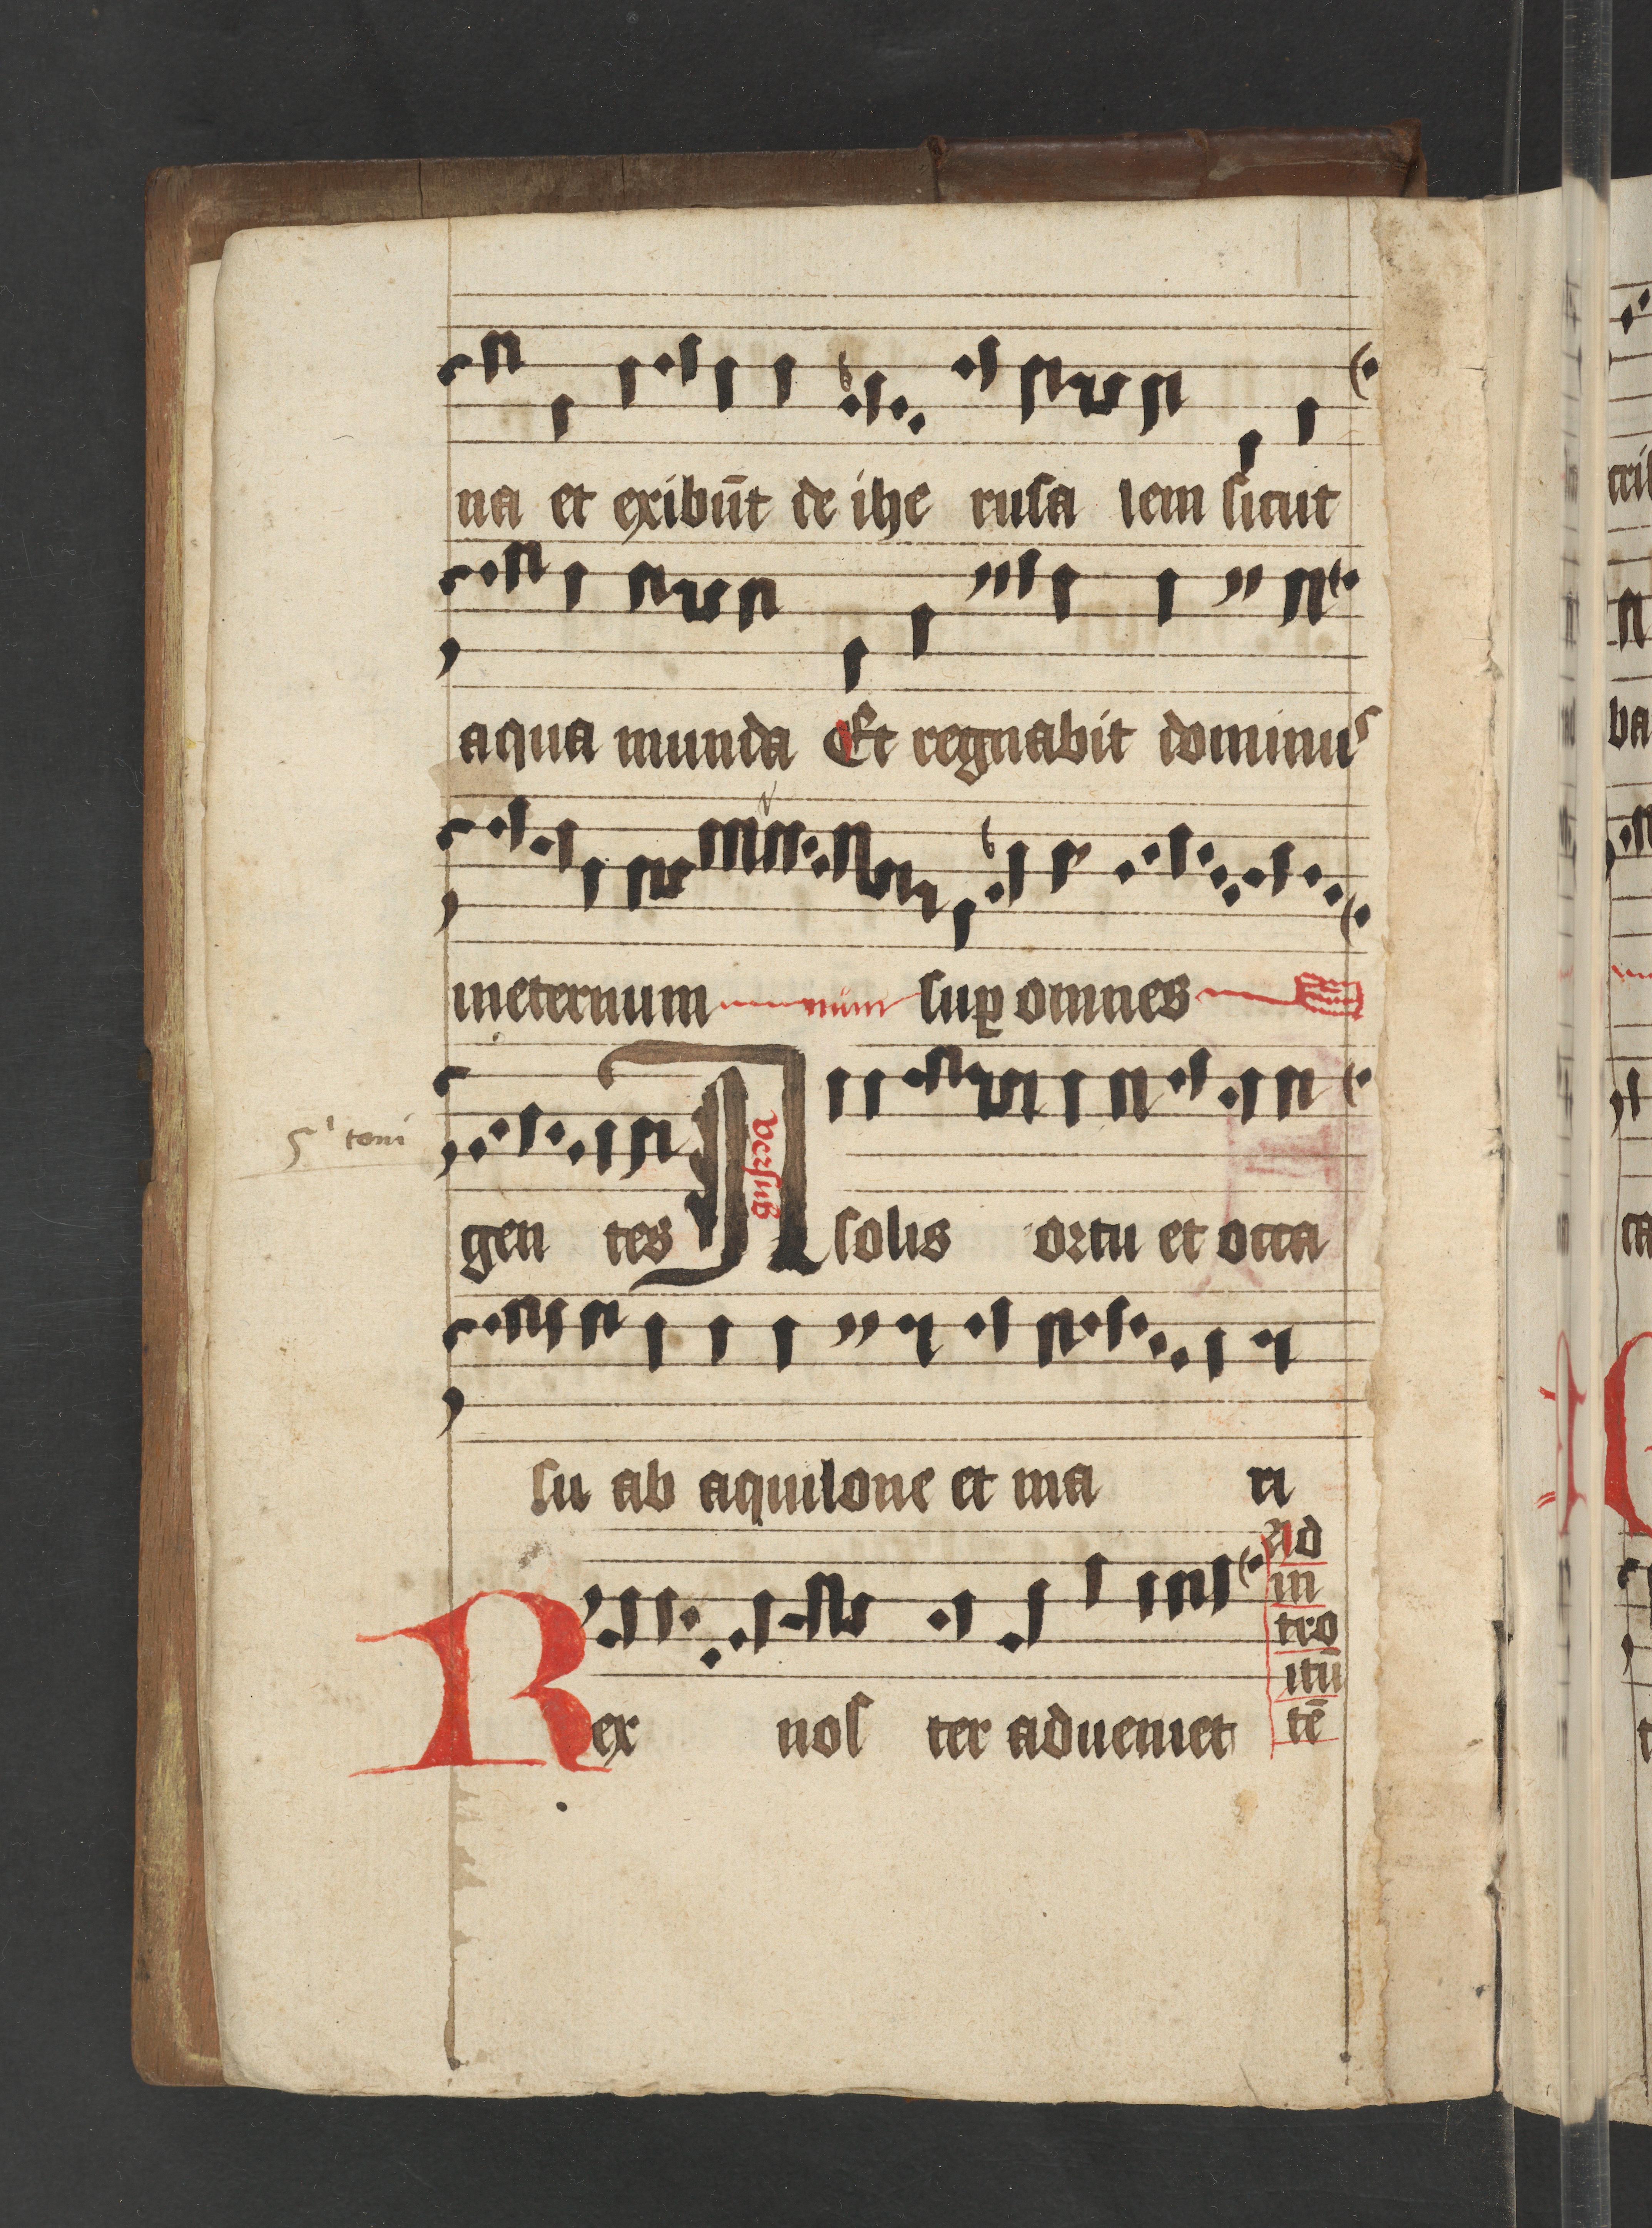 na et exibūt de ihe rusa lem sicut
aqua munda Et regnabit dominus
ineternum num sup omnes
5ⁱ toni
gen tes A versus solis ortu et occa
su ab aquilone et ma ri
Rex nos ter adueniet
Ad
in
tro
itū
tē